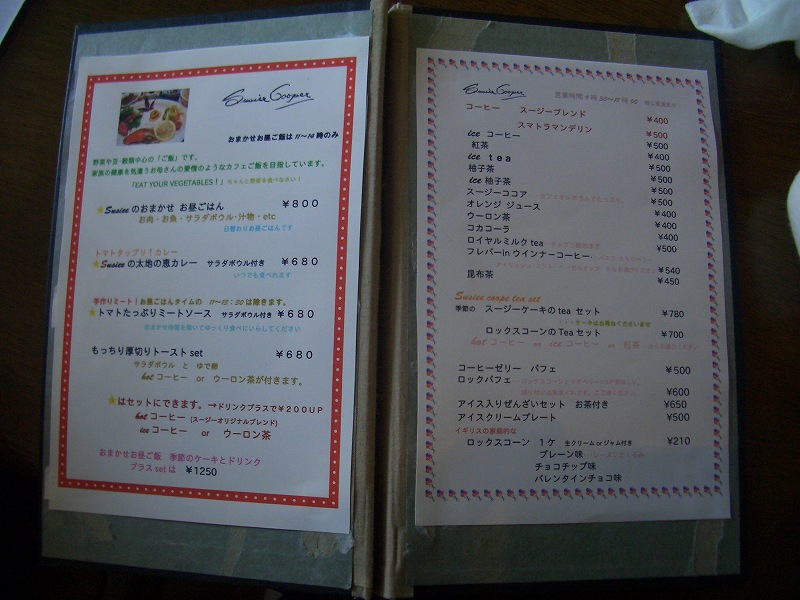 Susier Cooper
おまかせお昼ご飯は 11〜14 時のみ
野菜や豆・穀類中心の「ご飯」です。
家族の健康を気遣うお母さんの愛情のようなカフェご飯を目指しています。
「EAT YOUR VEGETABLES!」ちゃんと野菜を食べなさい!
★Susieeのおまかせ お昼ごはん ¥800
お肉・お魚・サラダボウル・汁物・etc
日替わりお昼ごはんです
トマトタップリ!カレー
★Susieeの太地の恵カレー サラダボウル付き ¥680
いつでも食べれます
手作りミート!お昼ごはんタイムの 11〜13:30は除きます。
★トマトたっぷりミートソース サラダボウル付き ¥680
おまかせ時間を除いてゆっくり食べにいらしてください
もっちり厚切りトースト set ¥680
サラダボウル と ゆで卵
hot コーヒー or ウーロン茶が付きます。
★はセットにできます。→ドリンクプラスで¥200UP
hot コーヒー (スージーオリジナルブレンド)
ice コーヒー or ウーロン茶
おまかせお昼ご飯 季節のケーキとドリンク
プラス set は ¥1250
Susier Cooper
営業時間
コーヒー スージーブレンド ¥400
スマトラマンデリン ¥500
ice コーヒー ¥500
紅茶 ¥400
ice tea ¥500
柚子茶 ¥500
ice 柚子茶 ¥500
スージーココア ¥500
オレンジ ジュース ¥400
ウーロン茶 ¥400
コカコーラ ¥400
ロイヤルミルク tea ¥500
フレバーin ウインナーコーヒー ¥540
昆布茶 ¥450
Susiee coope tea set
季節の スージーケーキの tea セット ¥780
・・・ケーキはお尋ねくださいませ
ロックスコーンの Tea セット ¥700
hot コーヒー or ice コーヒー or 紅茶
コーヒーゼリー パフェ ¥500
ロックパフェ ¥600
アイス入りぜんざいセット お茶付き ¥650
アイスクリームプレート ¥500
イギリスの家庭的な
ロックスコーン 1ケ 生クリーム or ジャム付き ¥210
プレーン味
チョコチップ味
バレンタインチョコ味